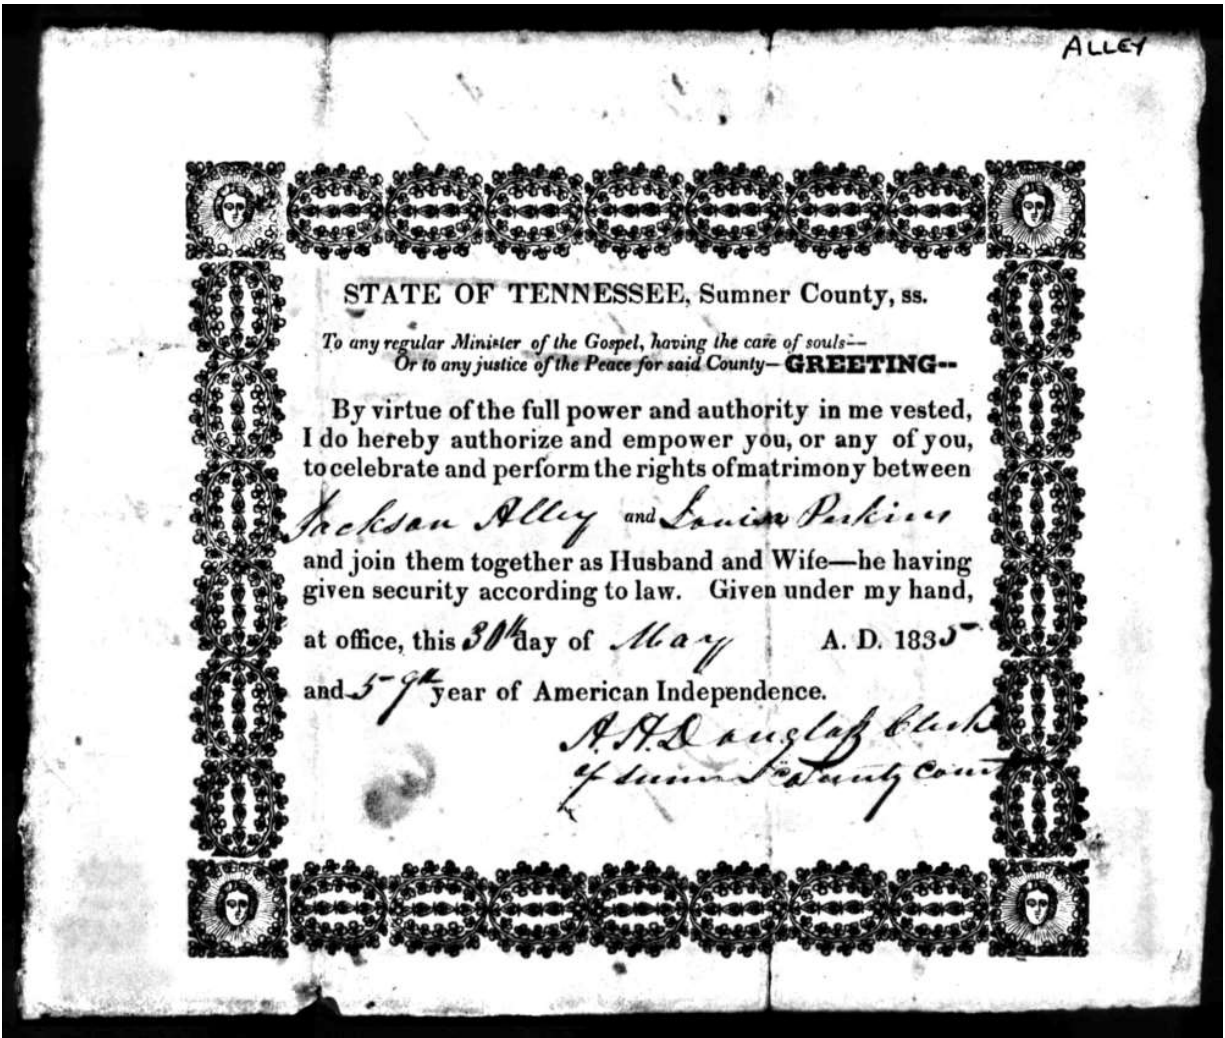 ALLEY
STATE OF TENNESSEE, Sumner County, ss.
To any regular Minister of the Gospel, having the care of souls--
Or to any justice of the Peace for said County- GREETING--
By virtue of the full power and authority in me vested,
I do hereby authorize and empower you, or any of you,
to celebrate and perform the rights of matrimony between
Jackson Alley and Louisa Perkins
and join them together as Husband and Wife—he having
given security according to law. Given under my hand,
at office, this 30th day of May A. D. 1835
and 59th year of American Independence.
A. H. Douglass Clerk
of Sumner County Court